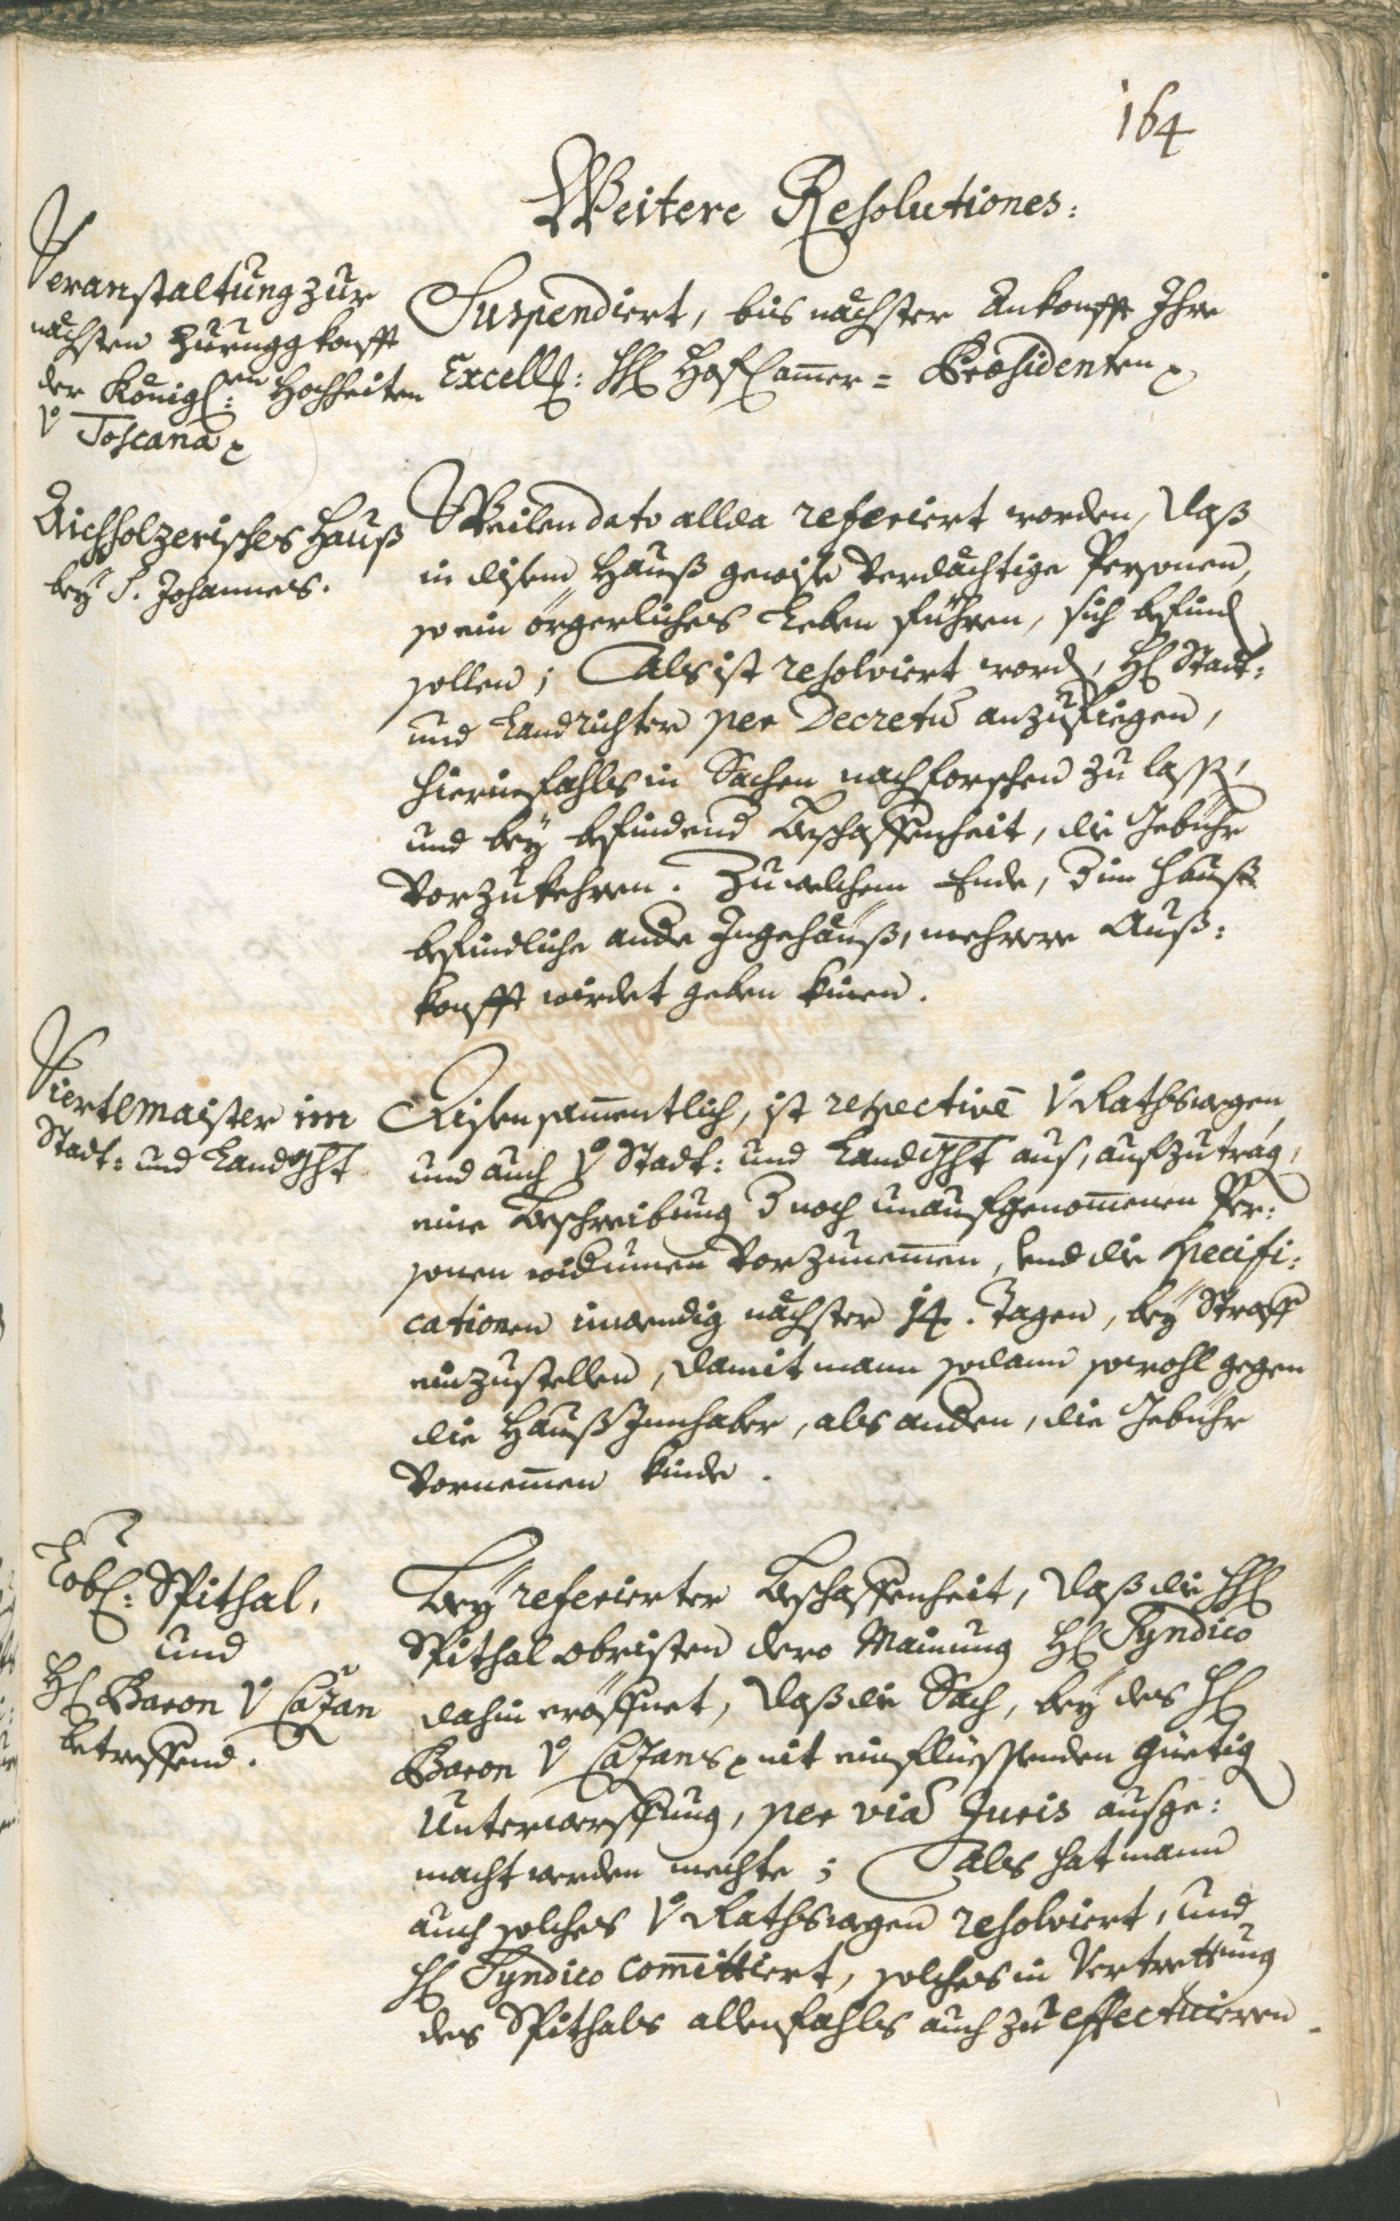 164
Weitere Resolutiones:
Veranstaltung zur
nächsten Zuruggkonfft
der Königl:en Hochheiten
v Toscana
Suspendiert, bis nächster Ankonfft Ihre
Excell: HH Hof Cam̄er= Præsidenten
Aichholzerisches Hauß
bey S. Johannes.
Weilen dato allda referiert worden, daß
in disem Hauß gewise verdächtige Personen,
so ein örgerliches Leben führen, sich befind
sollen; Als ist resolviert word, H Stadt=
und Landrichter per Decretū anzufiegen,
hierinfahls in Sachen nachforschen zu lass,
und bey befindend Beschaffenheit, die Gebühr
vorzukehren. Zu welchem Ende, im Hauß
befindliche ande Ingehäuß, mehrere Auß=
konfft wirdet geben könen.
Viertlmaister im
Stadt= und Landght
Disen sam̄entlich, ist respectivē v Rathswegen
und auch v Stadt= und Landght aus, aufzutrag,
eine Beschreibung noch unaufgenom̄enen Per=
sonen widumen vorzunem̄en, und die specifi=
cationen inwendig nächster 14. Tagen, bey Straff
einzustellen, damit mann sodann sowohl gegen
die Hauß Innhaber, als anden, die Gebühr
vornem̄en künde.
Lobl: Spithal,
und
H Baron v CaZan
betreffend.
Bey referierter Beschaffenheit, daß die HH
Spithalobristen dero Mainung H Syndico
dahin eröffnet, daß die Sach, bey des H
Baron v CaZans nit einfliessenden güetig
Unterwerffung, per viā Juris ausge=
macht werden mechte; Als hat mann
auch solches v Rathswegen resolviert, und
H Syndico com̄ittiert, solches in Vertrettung
des Spithals allenfahls auch zu effectuieren.